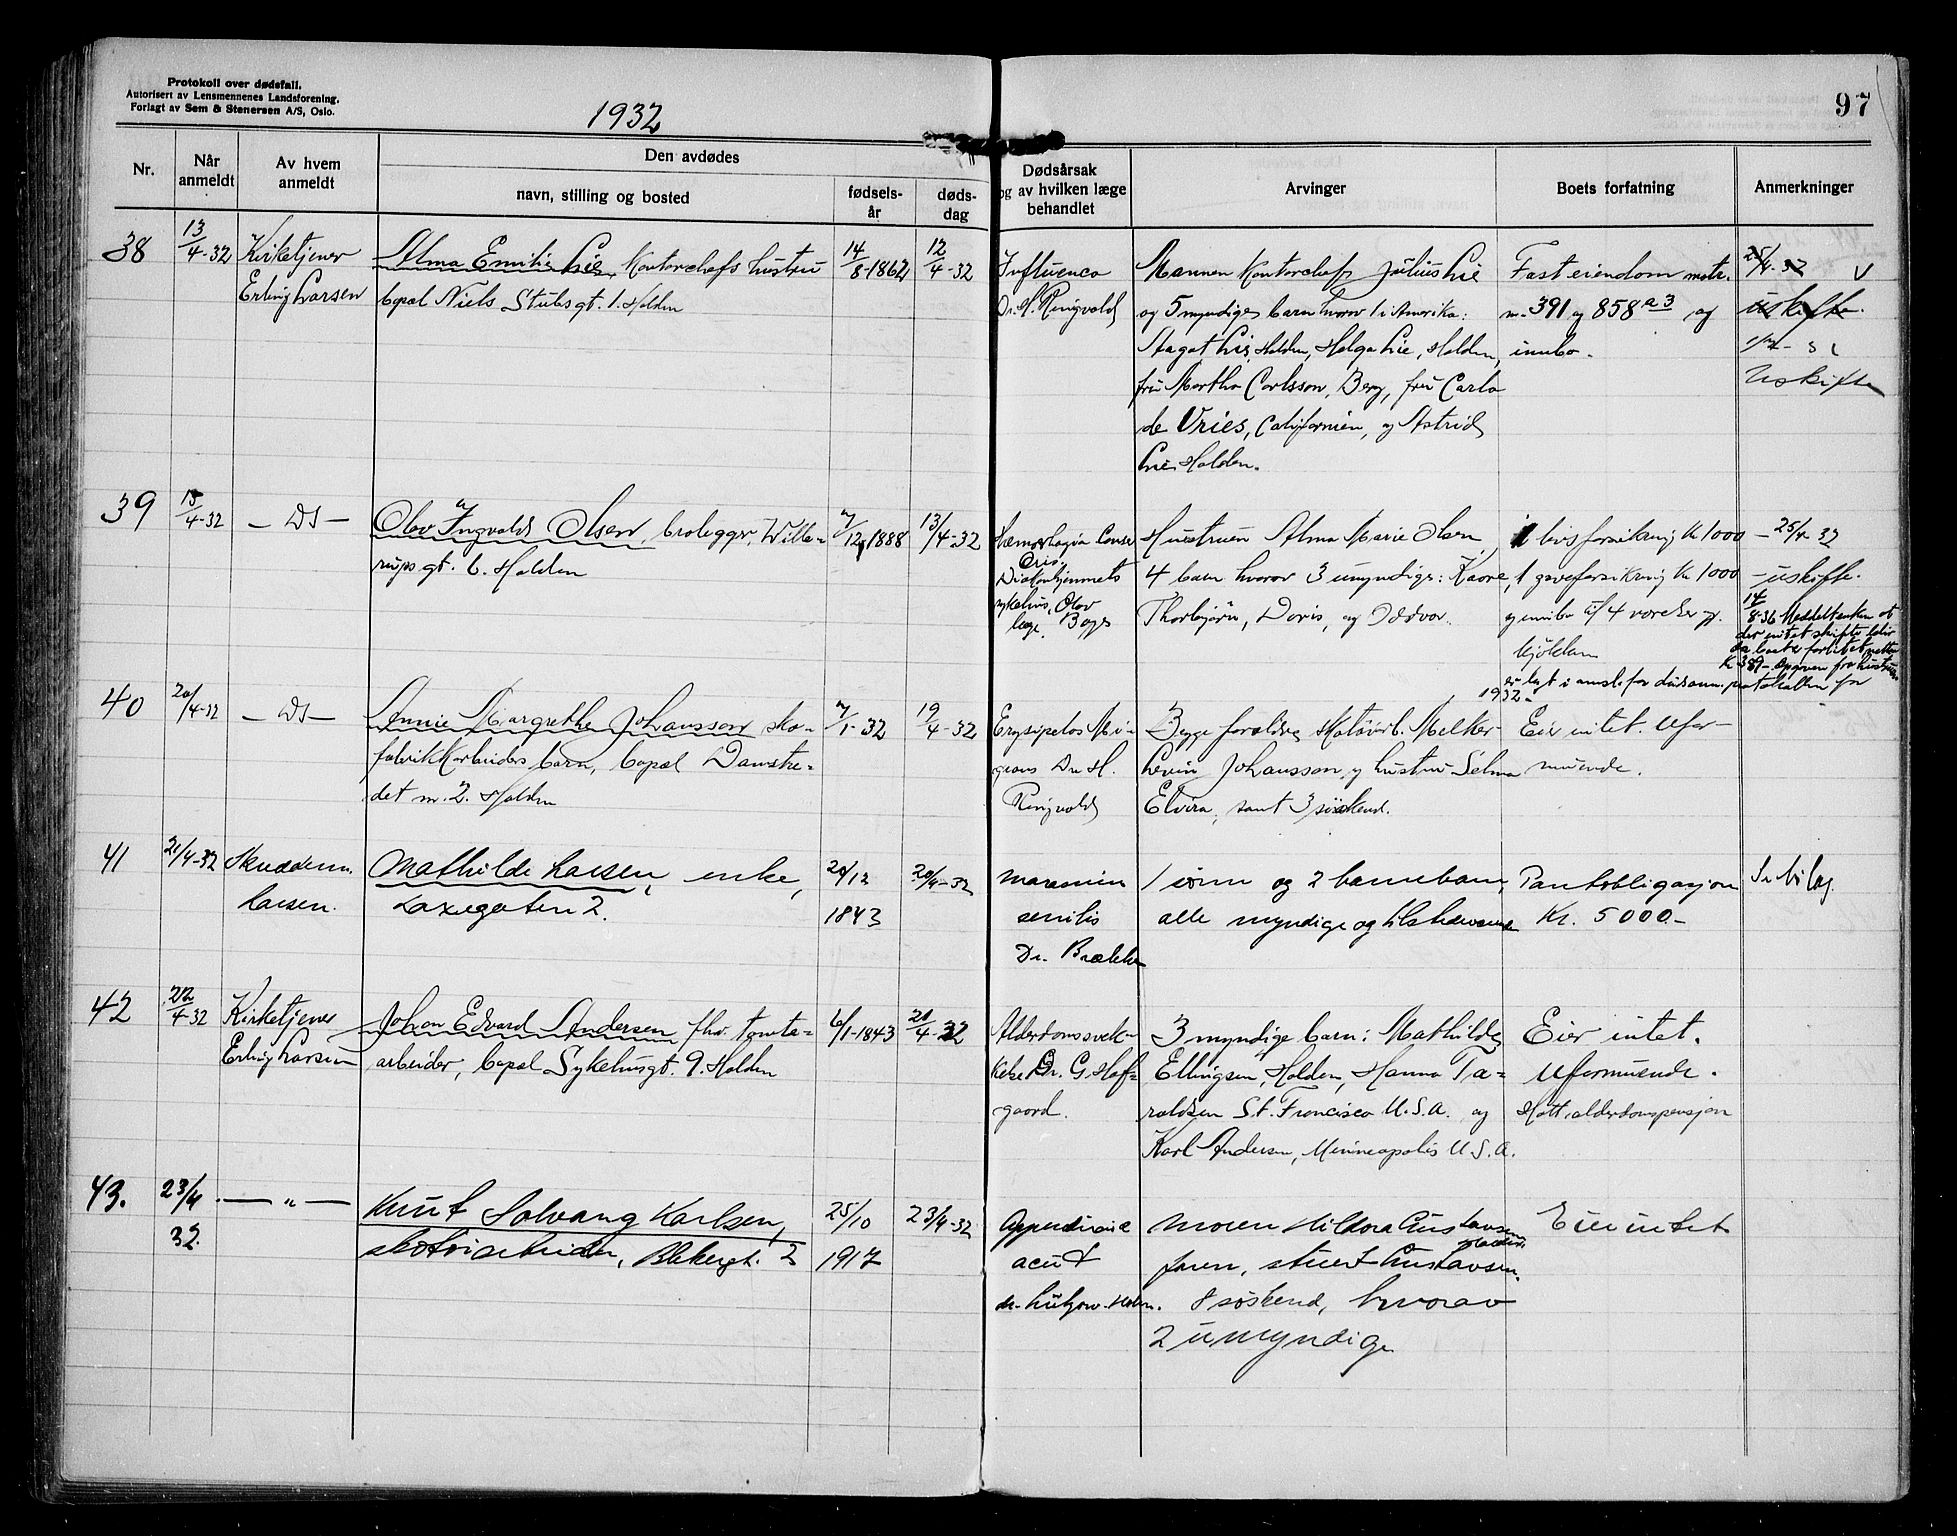 Protokoll over dødsfall.
Autorisert av Lensmennenes Landsforening.
Forlagt av Sem & Stenersen A/S, Oslo.
1932
97
Nr.
Når anmeldt
Av hvem anmeldt
Den avdødes
navn, stilling og bosted
fødsels-år
døds-dag
Dødsårsak og av hvilken læge behandlet
Arvinger
Boets forfatning
Anmerkninger
38
13/4-32
Kirketjener
Erling Larsen
Alma Emilie Lie, Kontorchefs hustru
bopæl Niels Stubsgt. 1. Halden
14/8-1862
12/4-32
Influenca
Dr. H. Ringvold
Mannen Kontorchef Julius Lie
og 5 myndige barn hvorav 1 i Amerika:
Aagot Lie, Halden, Helga Lie, Halden,
fru Martha Carlsson, Berg, fru Carla
de Vries, Californien, og Astrid
Lie Halden.
Fast eiendom matr.
nr. 391 og 858 a 3 og
innbo.
25/4-32
uskifte.
Uskifte
39
15/4-32
- Ds -
Olav Ingvald Olsen, brolegger, Wille-
rupsgt. 6. Halden
7/12 1888
13/4-32
Diakonhjemmets
sykehus, Olav
læge.
Hustruen Alma Marie Olsen
4 barn hvorav 3 umyndige: Kaare,
Thorbjørn, Doris, og Oddvar.
1 livsforsikring Kr 1000
1 gaveforsikring Kr 1000
og innbo
- 25/4-32
- uskifte.
14/8-36 Meddelt enken at
der intet skifte blir
da boet er forlitet netto
Kr 389- Opgaven fra hustruen
er lagt i omsl. for dødsanm. protokollen for
1932-
40
20/4-32
- Ds -
Annie Margrethe Johansson sko-
fabrikkarbeiders barn, bopæl Damste-
det nr. 2. Halden
7/1-32
19/4-32
Erysipelas Mi-
grans Dr H.
Ringvold
Begge foreldre Skotøiarb. Melker
Levin Johansson, og hustru Selma
Elvira, samt 3 søskend.
Eier intet. Ufor-
muende.
41
21/4-32
Larsen.
Mathilde Larsen, enke,
Laxegaten 2.
20/12
1843
20/4-32
senilis
Dr. Brække
1 sønn og 2 barnebarn,
alle myndige og tilstedeværende
Pantobligasjon
Kr. 5000.-
Se bilag.
42
22/4-32
Kirketjener
Erling Larsen
Johan Edvard Andersen fhv. tomte-
arbeider, bopæl Sykehusgt. 9. Halden
6/1-1843
21/4-32
Alderdomssvek-
kelse Dr. G. Hof-
gaard.
3 myndige barn: Mathilde
Ellingsen, Halden, Hanna Ta-
raldsen St. Francisco U.S.A. og
Karl Andersen, Minneapolis U.S.A.
Eier intet.
Uformuende.
Hatt alderdomspensjon
43.
23/4
32.
- " -
Knut Solvang Karlsen,
skotøiarbeider, Blekergt. 2
25/10
1917
23/4-32
Appendicite
acut
Moren Hildora Gustavsen
faren, stuert Gustavsen.
8 søskend, hvorav
2 umyndige
Eier intet